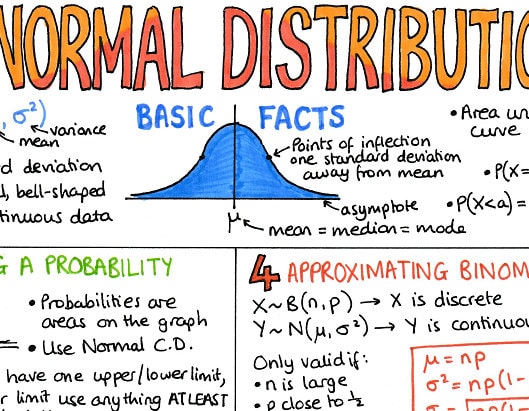 NORMAL DISTRIBUTIO
BASIC FACTS
, σ²)
variance
mean
d deviation
, bell-shaped
tinuous data
Points of inflection
one standard deviation
away from mean
asymptote
μ
mean = median = mode
• Area un
curve
• P(X=
• P(X<a) =
G A PROBABILITY
• Probabilities are
areas on the graph
• Use Normal C.D.
have one upper/lower limit,
r limit use anything AT LEAST
4 APPROXIMATING BINOM
X~B(n,p) → X is discrete
Y~N(μ,σ²) → Y is continuou
Only valid if:
• n is large
• p close to ½
μ = np
σ² = np(1-